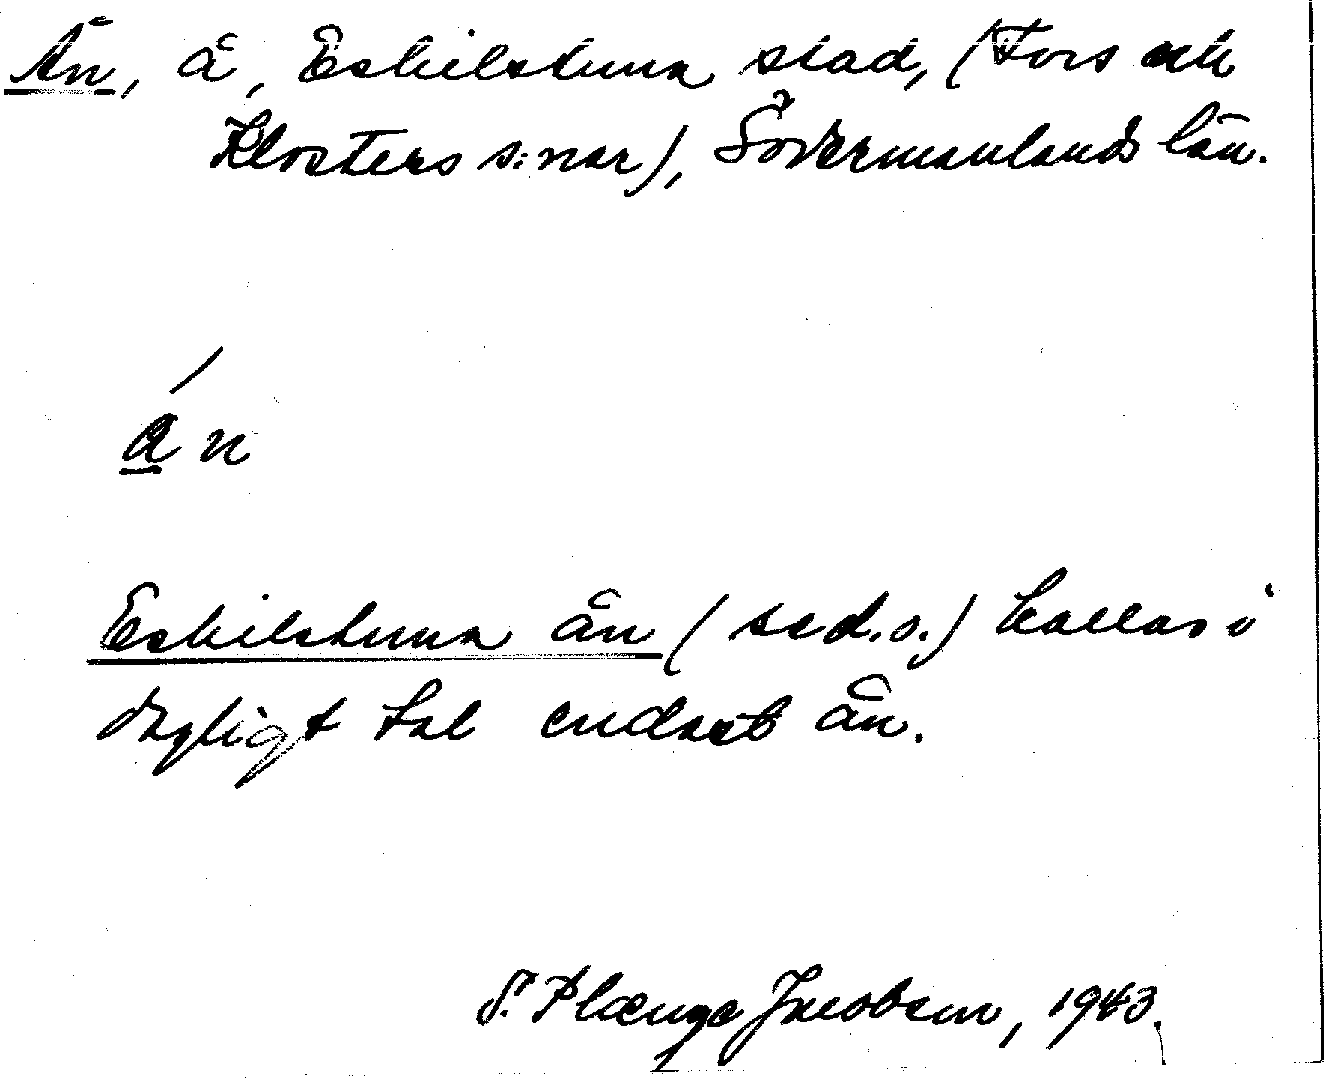 Ån, å, Eskilstuna stad, (Fors och
Klosters s:nar), Södermanlands län.
án
Eskilstuna ån (se d.o.) kallas i
dagligt tal endast ån.
S. Plænge Jacobson, 1943.